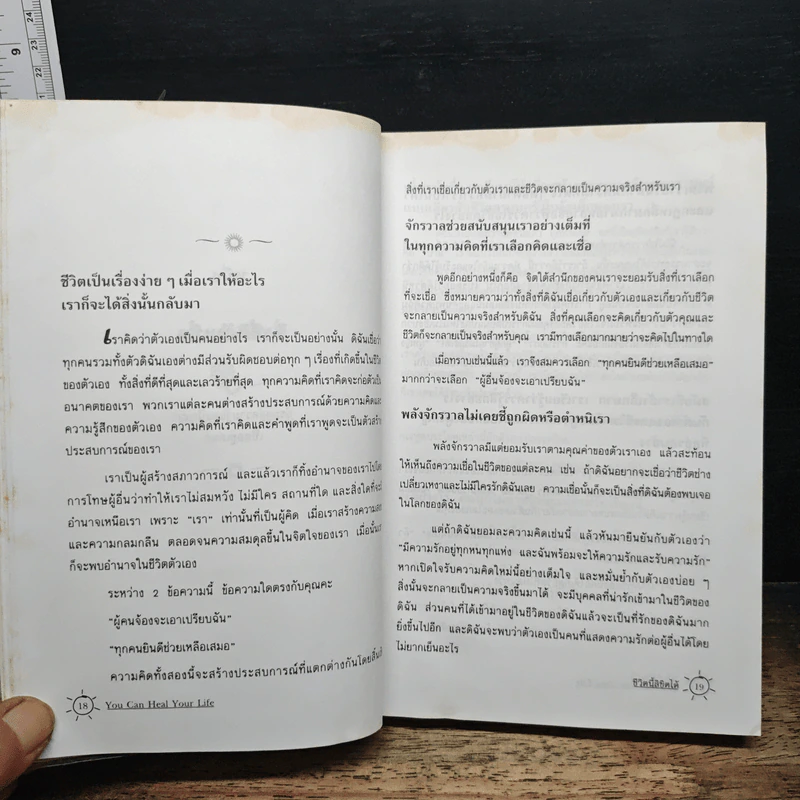 ชีวิตเป็นเรื่องง่าย ๆ เมื่อเราให้อะไร
เราก็จะได้สิ่งนั้นกลับมา
เราคิดว่าตัวเองเป็นคนอย่างไร เราก็จะเป็นอย่างนั้น ดิฉันเชื่อว่า
ทุกคนรวมทั้งตัวดิฉันเองต่างมีส่วนรับผิดชอบต่อทุก ๆ เรื่องที่เกิดขึ้นในชีวิต
ของตัวเอง ทั้งสิ่งที่ดีที่สุดและเลวร้ายที่สุด ทุกความคิดที่เราคิดจะก่อตัวเป็น
อนาคตของเรา พวกเราแต่ละคนต่างสร้างประสบการณ์ด้วยความคิดและ
ความรู้สึกของตัวเอง ความคิดที่เราคิดและคำพูดที่เราพูดจะเป็นตัวสร้าง
ประสบการณ์ของเรา
เราเป็นผู้สร้างสภาวการณ์ และแล้วเราก็ทิ้งอำนาจของเราไปโดย
การโทษผู้อื่นว่าทำให้เราไม่สมหวัง ไม่มีใคร สถานที่ใด และสิ่งใดที่จะมี
อำนาจเหนือเรา เพราะ "เรา" เท่านั้นที่เป็นผู้คิด เมื่อเราสร้างความสงบ
และความกลมกลืน ตลอดจนความสมดุลขึ้นในจิตใจของเรา เมื่อนั้นเรา
ก็จะพบอำนาจในชีวิตตัวเอง
ระหว่าง 2 ข้อความนี้ ข้อความใดตรงกับคุณคะ
"ผู้คนจ้องจะเอาเปรียบฉัน"
"ทุกคนยินดีช่วยเหลือเสมอ"
ความคิดทั้งสองนี้จะสร้างประสบการณ์ที่แตกต่างกันโดยสิ้นเชิง
18 You Can Heal Your Life
สิ่งที่เราเชื่อเกี่ยวกับตัวเราและชีวิตจะกลายเป็นความจริงสำหรับเรา
จักรวาลช่วยสนับสนุนเราอย่างเต็มที่
ในทุกความคิดที่เราเลือกคิดและเชื่อ
พูดอีกอย่างหนึ่งก็คือ จิตใต้สำนึกของคนเราจะยอมรับสิ่งที่เราเลือก
ที่จะเชื่อ ซึ่งหมายความว่าทั้งสิ่งที่ดิฉันเชื่อเกี่ยวกับตัวเองและเกี่ยวกับชีวิต
จะกลายเป็นความจริงสำหรับดิฉัน สิ่งที่คุณเลือกจะคิดเกี่ยวกับตัวคุณและ
ชีวิตก็จะกลายเป็นจริงสำหรับคุณ เรามีทางเลือกมากมายว่าจะคิดไปในทางใด
เมื่อทราบเช่นนี้แล้ว เราจึงสมควรเลือก "ทุกคนยินดีช่วยเหลือเสมอ"
มากกว่าจะเลือก "ผู้อื่นจ้องจะเอาเปรียบฉัน"
พลังจักรวาลไม่เคยชี้ถูกผิดหรือตำหนิเรา
พลังจักรวาลมีแต่ยอมรับเราตามคุณค่าของตัวเราเอง แล้วสะท้อน
ให้เห็นถึงความเชื่อในชีวิตของแต่ละคน เช่น ถ้าดิฉันอยากจะเชื่อว่าชีวิตช่าง
เปลี่ยวเหงาและไม่มีใครรักดิฉันเลย ความเชื่อนั้นก็จะเป็นสิ่งที่ดิฉันต้องพบเจอ
ในโลกของดิฉัน
แต่ถ้าดิฉันยอมละความคิดเช่นนี้ แล้วหันมายืนยันกับตัวเองว่า
"มีความรักอยู่ทุกหนทุกแห่ง และฉันพร้อมจะให้ความรักและรับความรัก"
หากเปิดใจรับความคิดใหม่นี้อย่างเต็มใจ และหมั่นย้ำกับตัวเองบ่อย ๆ
สิ่งนั้นจะกลายเป็นความจริงขึ้นมาได้ จะมีบุคคลที่น่ารักเข้ามาในชีวิตของ
ดิฉัน ส่วนคนที่ได้เข้ามาอยู่ในชีวิตของดิฉันแล้วจะเป็นที่รักของดิฉันมาก
ยิ่งขึ้นไปอีก และดิฉันจะพบว่าตัวเองเป็นคนที่แสดงความรักต่อผู้อื่นได้โดย
ไม่ยากเย็นอะไร
ชีวิตนี้ลิขิตได้ 19
9
24
23
22
21